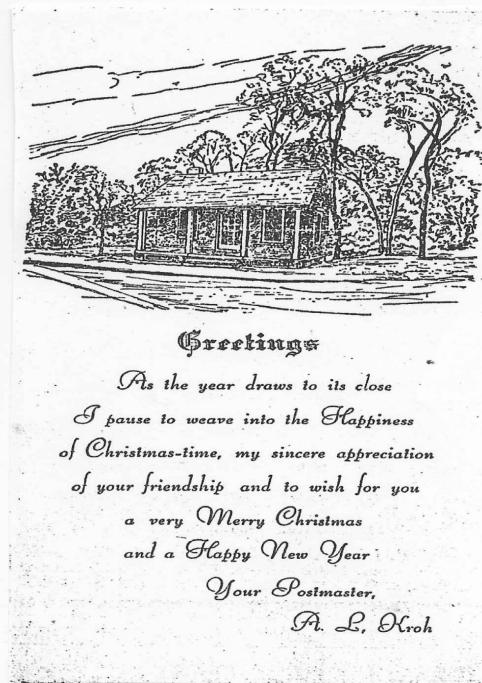 Greetings
As the year draws to its close
I pause to weave into the Happiness
of Christmas-time, my sincere appreciation
of your friendship and to wish for you
a very Merry Christmas
and a Happy New Year
Your Postmaster,
A. L. Kroh